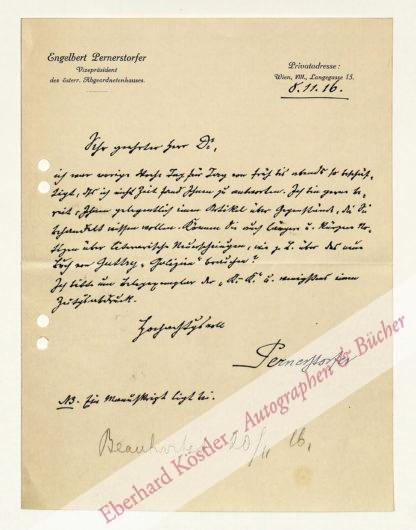 Engelbert Pernerstorfer
Vizepräsident
des österr. Abgeordnetenhauses.
Privatadresse:
Wien, VIII., Langegasse 15.
8.11.16.
Sehr geehrter Herr Dr,
ich war vorige Woche Tag für Tag von früh bis abends so beschäf-
tigt, daß ich nicht Zeit fand Ihnen zu antworten. Ich bin gerne be-
reit, Ihnen gelegentlich einen Artikel über Gegenstände, die Sie
behandelt wissen wollen. Können Sie auch längere u. kürzere No-
tizen über literarische Neuerscheinungen, wie z. B. über das neue
Buch von "Galizien" brauchen?
Ich bitte um Belegexemplar der u. wenigstens einen
Hochachtungsvoll
Pernerstorfer
NB. Ein Manuskript liegt bei.
Beantwortet 20/11 16.
Eberhard Köstler Autographen & Bücher